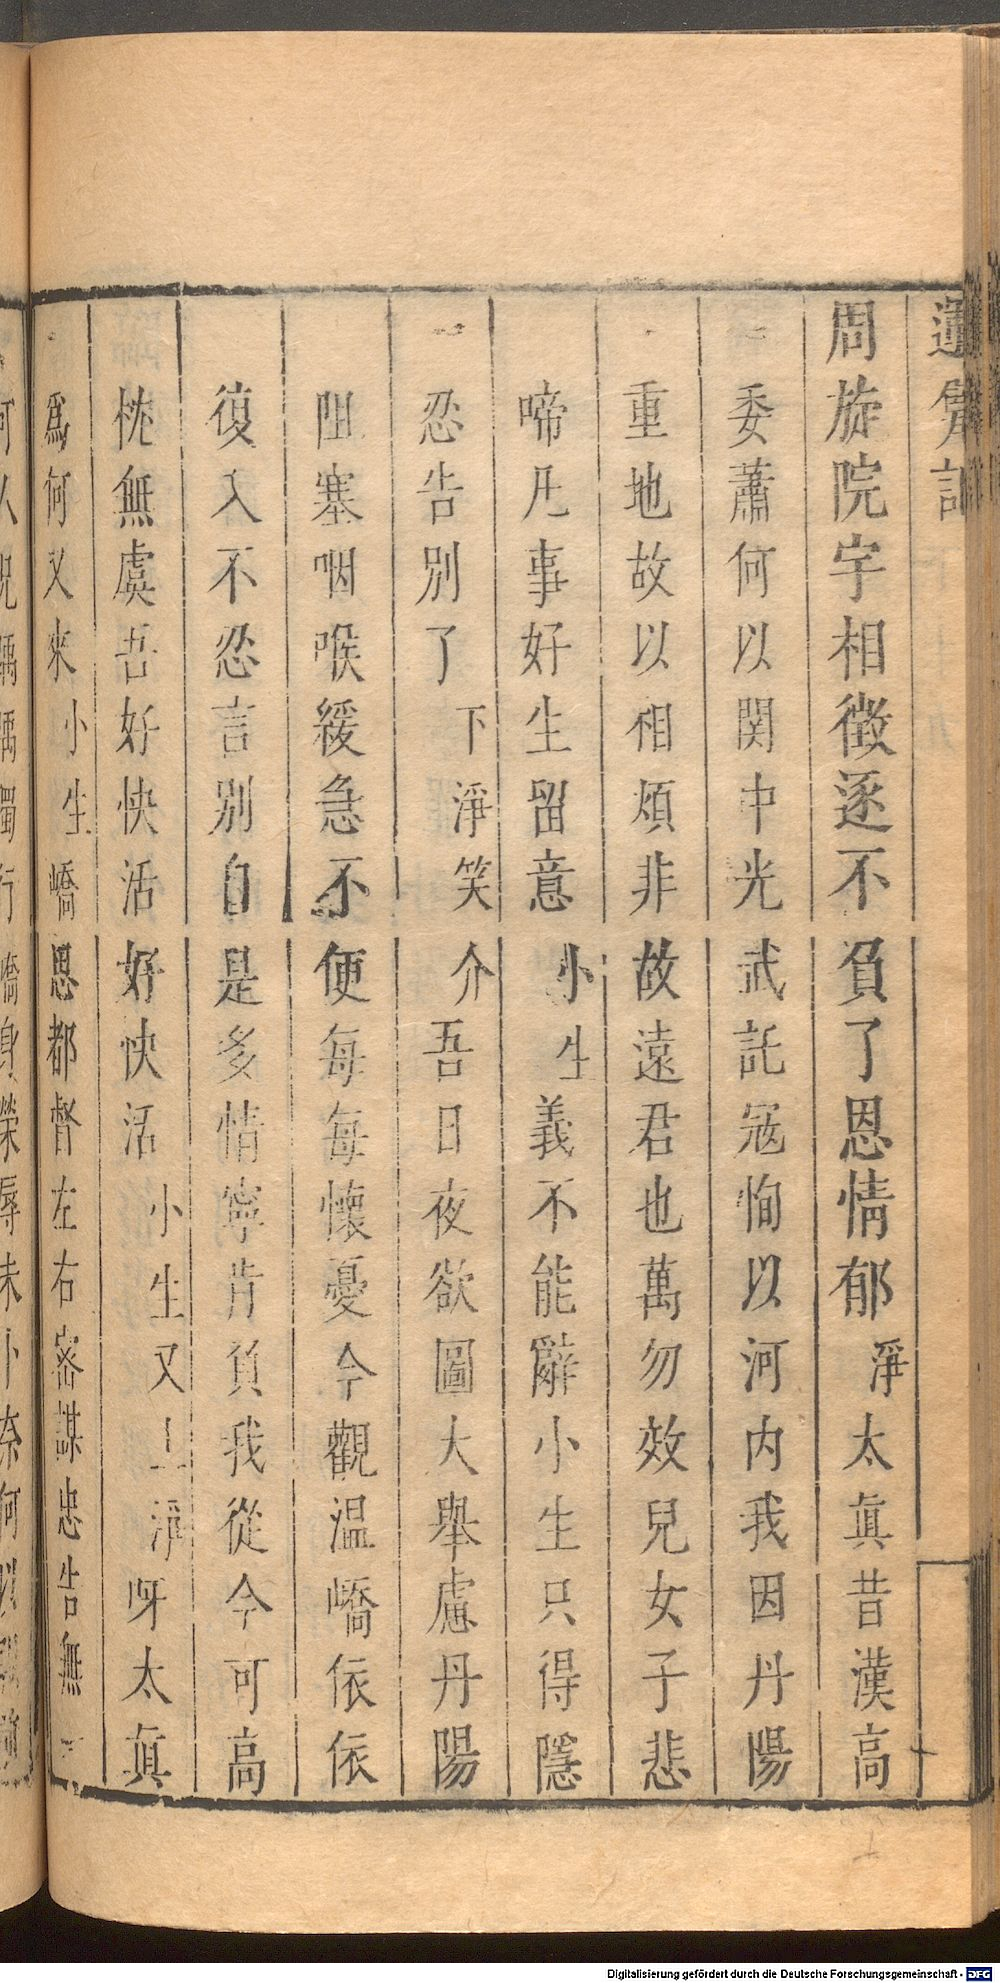 周旋院宇相徵逐不負了恩情郁淨太眞昔漢高
委蕭何以関中光武託冦恂以河内我因丹陽
重地故以相煩非故遠君也萬勿效兒女子悲
啼凡事好生留意小生義不能辭小生只得隱
忍告別了下淨笑介吾日夜欲圖大舉慮丹陽
阻塞咽喉緩急不便每每懷憂今觀温嶠依依
復入不忍言別自是多情寧肯負我從今可高
枕無虞吾好快活好快活小生又上淨呀太眞
爲何又來小生嶠恩都督左右密謀忠告無
Digitalisierung gefördert durch die Deutsche Forschungsgemeinschaft - DFG